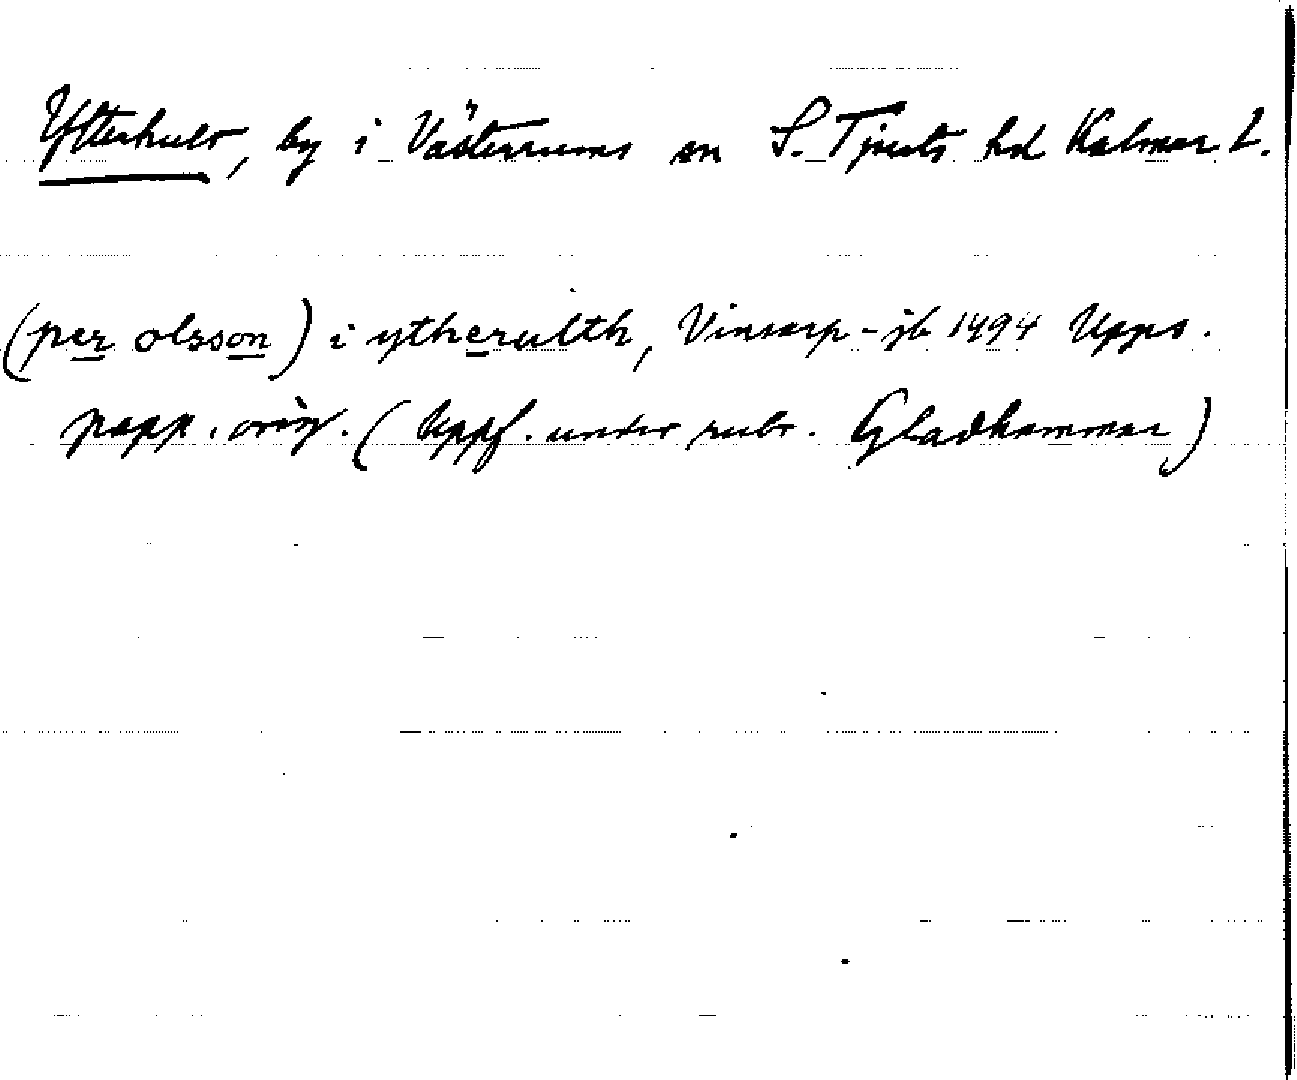 Ytterhult, by i Västerrums sn S. Tjusts hd Kalmar L.
(per olsson) i ytherulth, Vinsarp-jb 1494 Upps.
papp. orig. (Uppf. under rubr. Gladhammar)